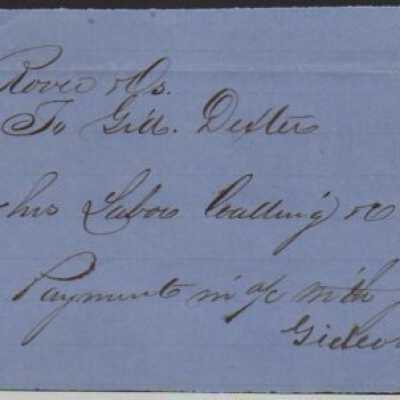 Rover & Co.
To Gid. Dexter
his Labor Coalling &c
Payment in a/c with
Gideon